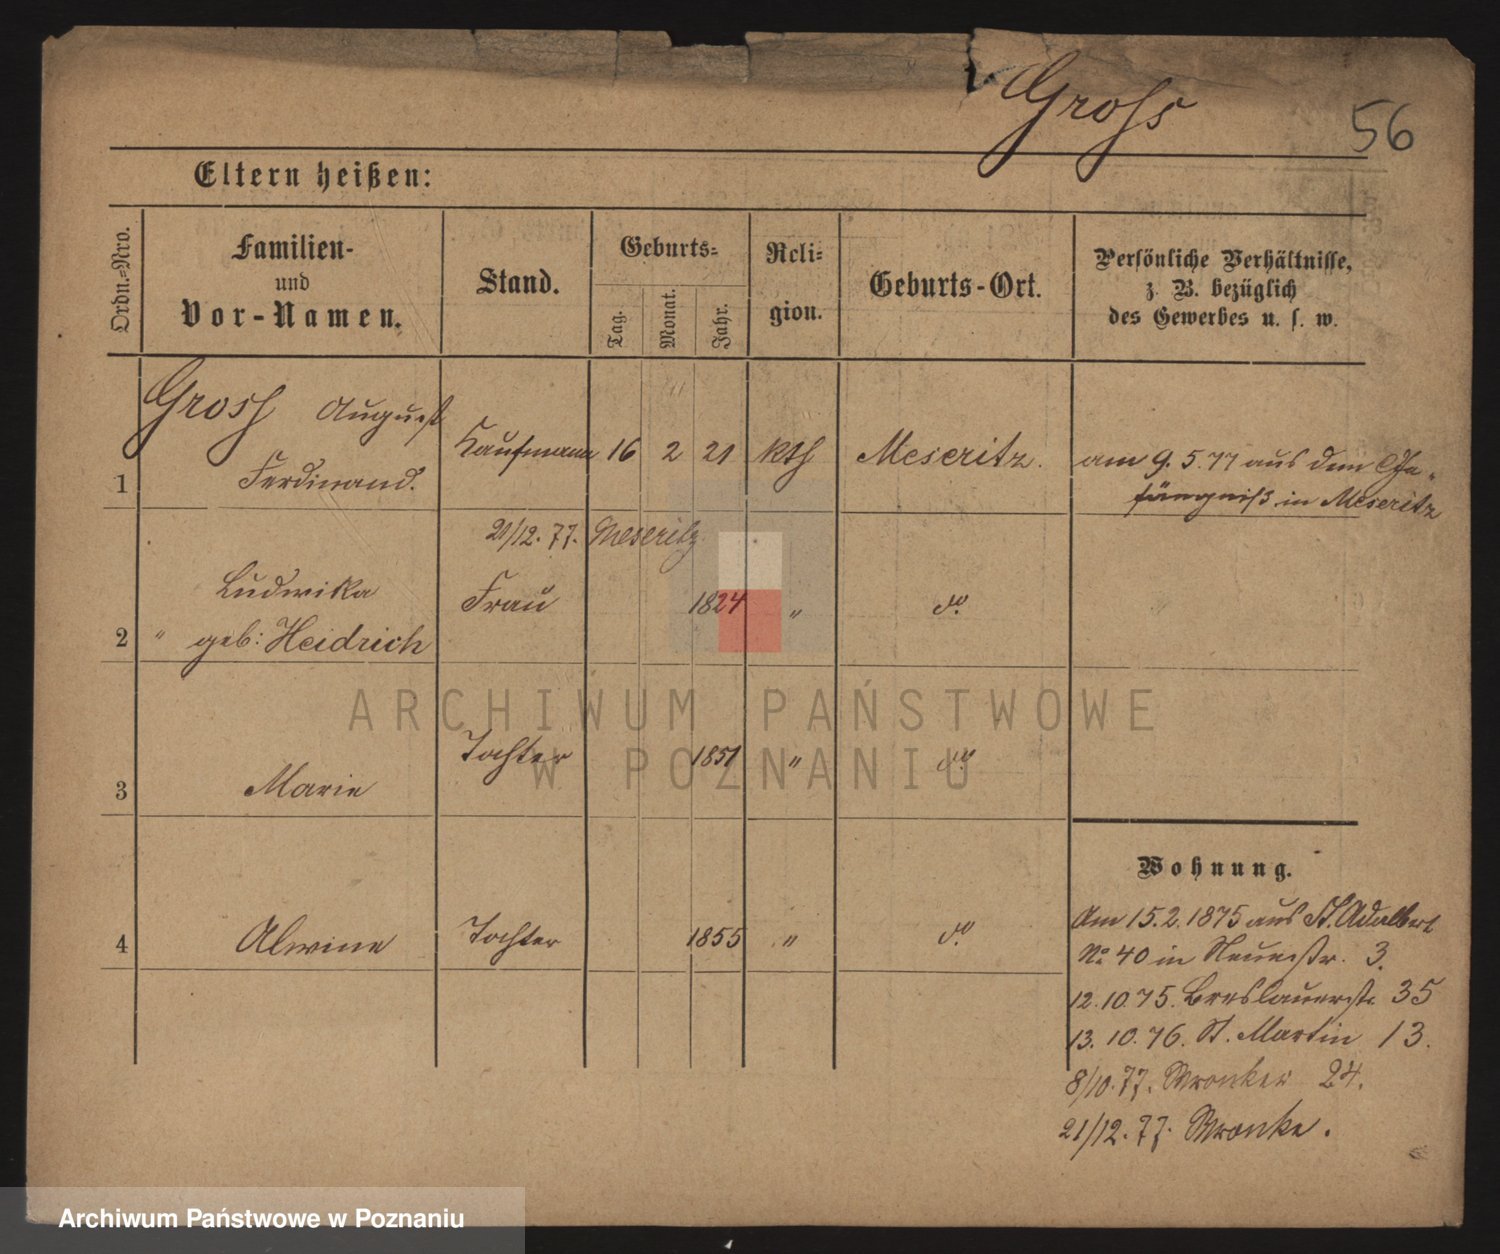 Groß
56
Eltern heißen:
Ordn.-Nro.
Familien-
und
Vor-Namen.
Stand.
Geburts-
Tag.
Monat.
Jahr.
Reli-
gion.
Geburts-Ort.
Persönliche Verhältnisse,
z. B. bezüglich
des Gewerbes u. s. w.
1 Groß August
Ferdinand. Kaufmann 16 2 21 kth Meseritz. am 9.5.77 aus dem Ge-
fängniß in Meseritz
21/12.77. Meseritz
Ludwika
2 " geb: Heidrich Frau 1824 " do.
3 Marie Tochter 1851 " do.
4 Alwine Tochter 1855 " do.
Wohnung.
Am 15.2.1875 aus St. Adalbert
No 40 in Neuestr. 3.
12.10.75. Breslauerstr. 35
13.10.76. St. Martin 13.
8/10.77. Wronker 24.
21/12.77. Wronke.
ARCHIWUM PAŃSTWOWE
W POZNANIU
Archiwum Państwowe w Poznaniu